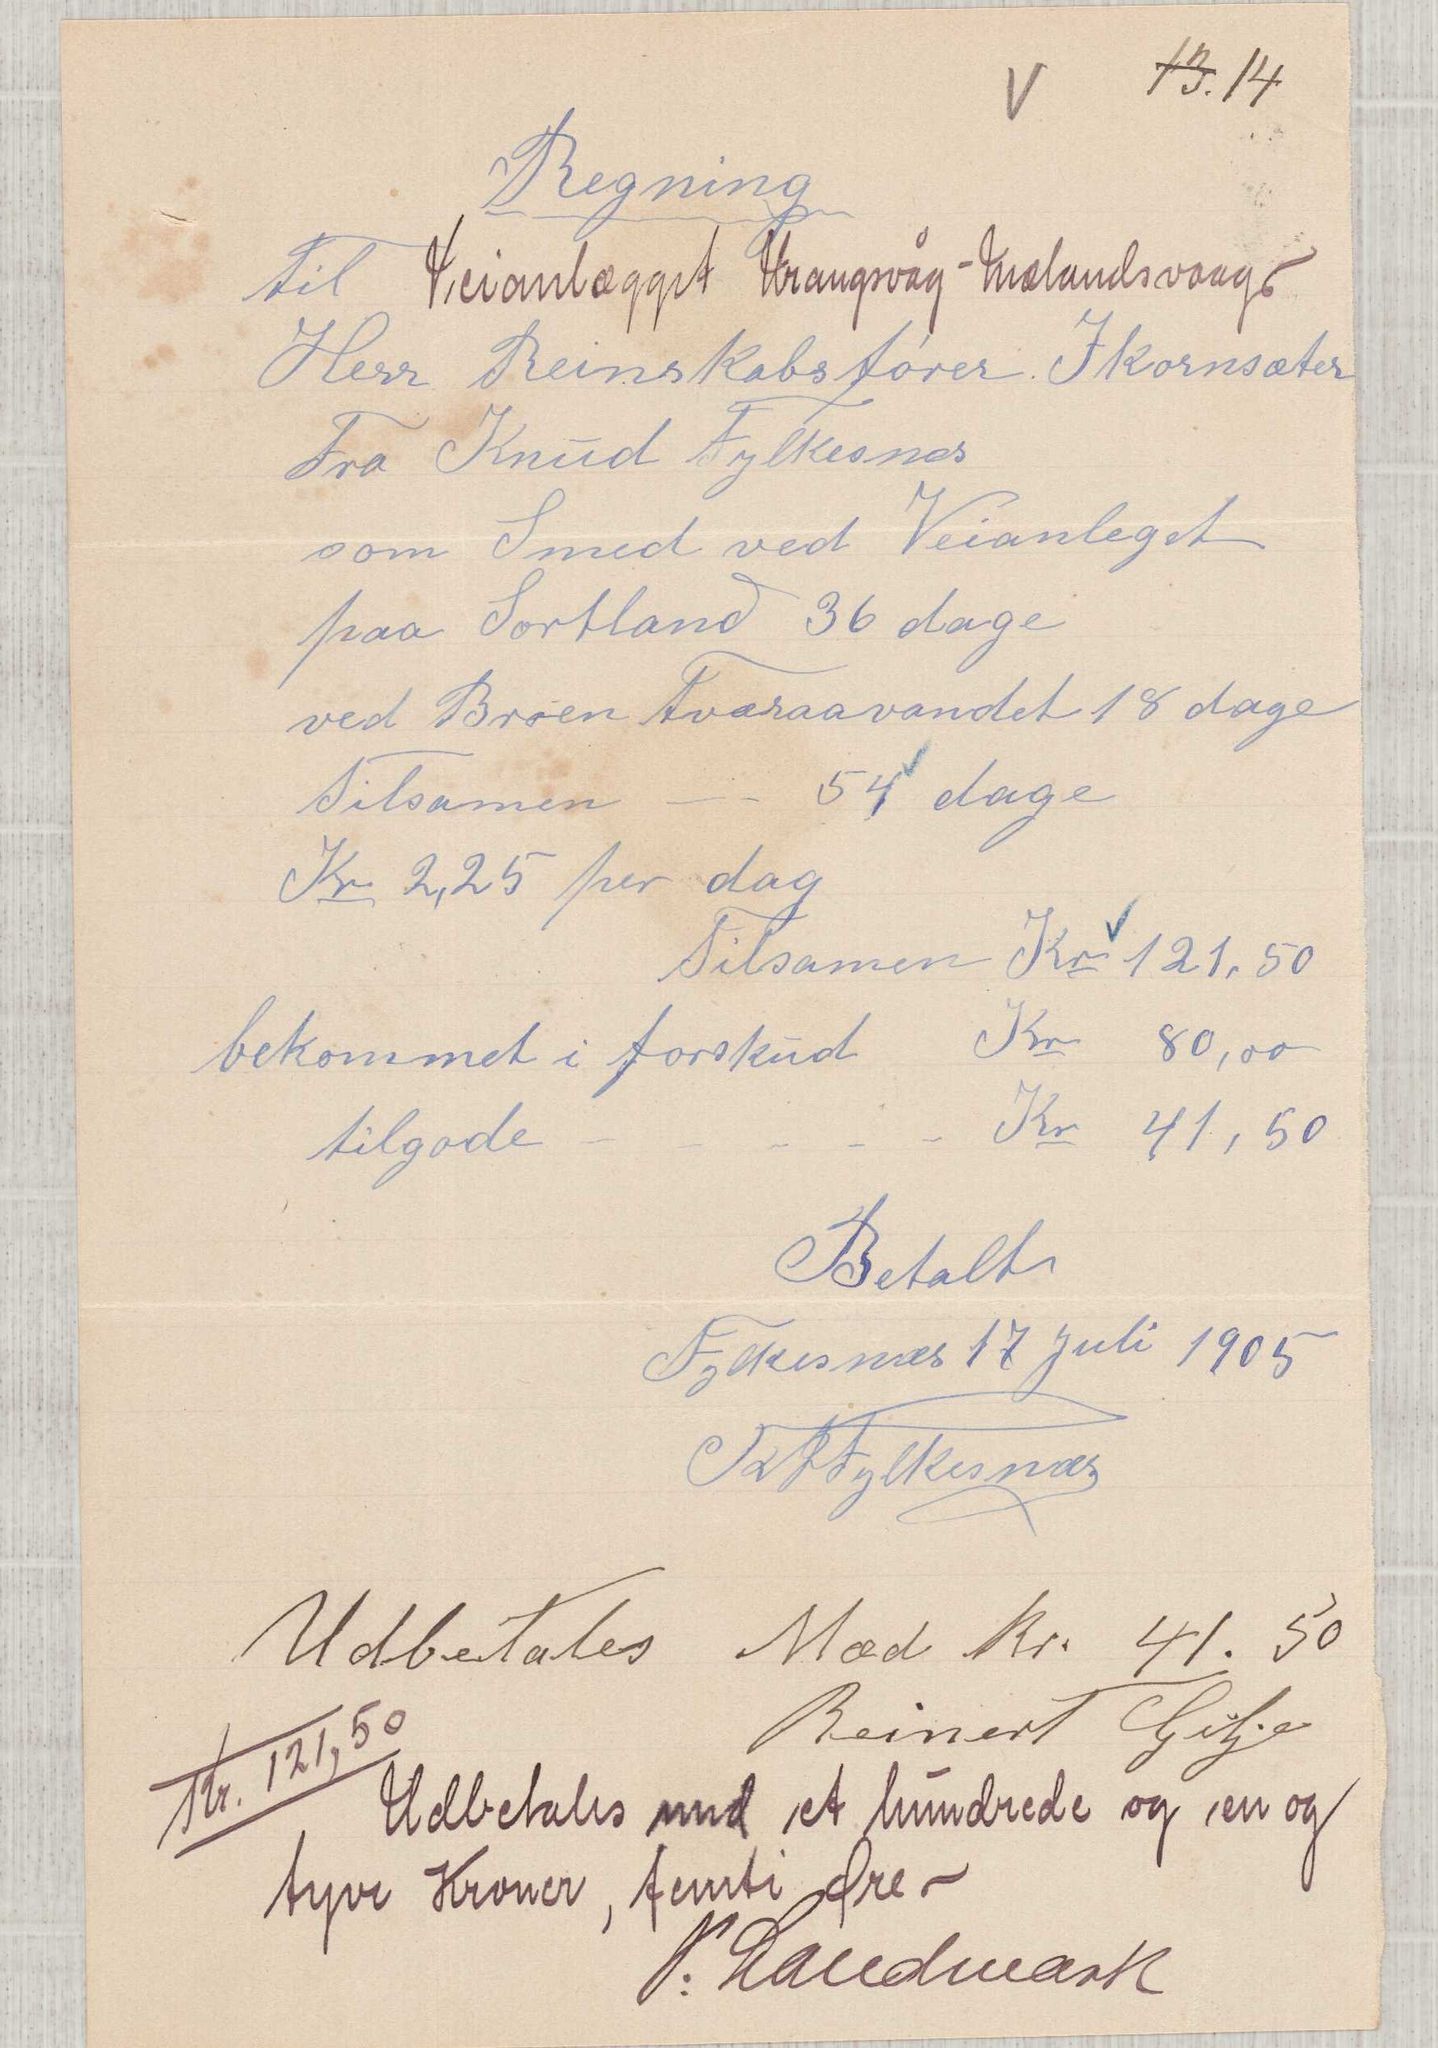 V 13. 14
Regning
til Veianlægget Vrangsvåg - Mælandsvaag
Herr Reinskabsfører Ikornsæter
Fra Knud Fylkesnes
som Smed ved Veianleget
paa Sortland 36 dage
ved Broen Tværaavandet 18 dage
Tilsamen — - 54 dage
Kr 2,25 per dag
Tilsamen Kr 121,50
bekommet i forskud Kr 80,00
tilgode - - - - - Kr 41,50
Betalt
Fylkesnæs 17 Juli 1905
Fylkesnæs
Udbetales Mæd Kr. 41.50
Reinert Gilje
Kr. 121,50
Udbetales med et hundrede og en og
tyve Kroner, femti Øre
P. Landmark